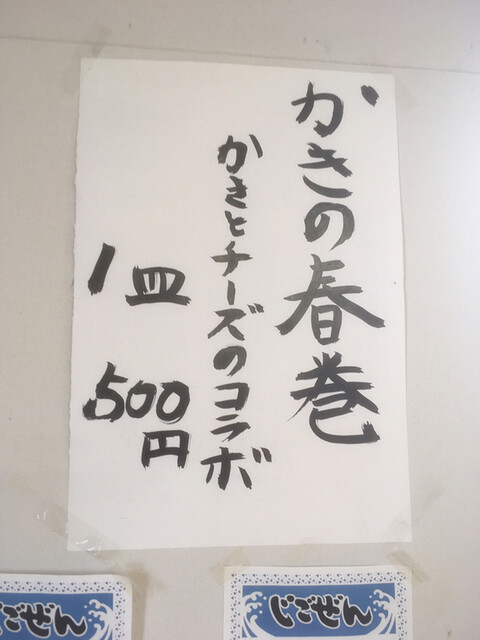 かきの春巻
かきとチーズのコラボ
1皿
500
円
じごぜん
じごぜん